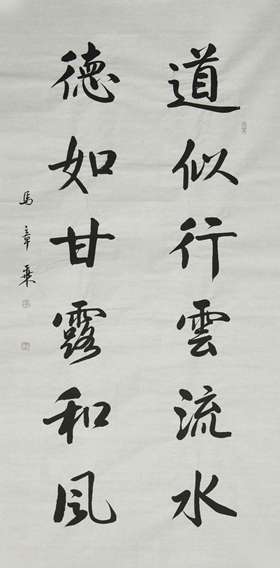 道似行雲流水
德如甘露和風
馬章乘